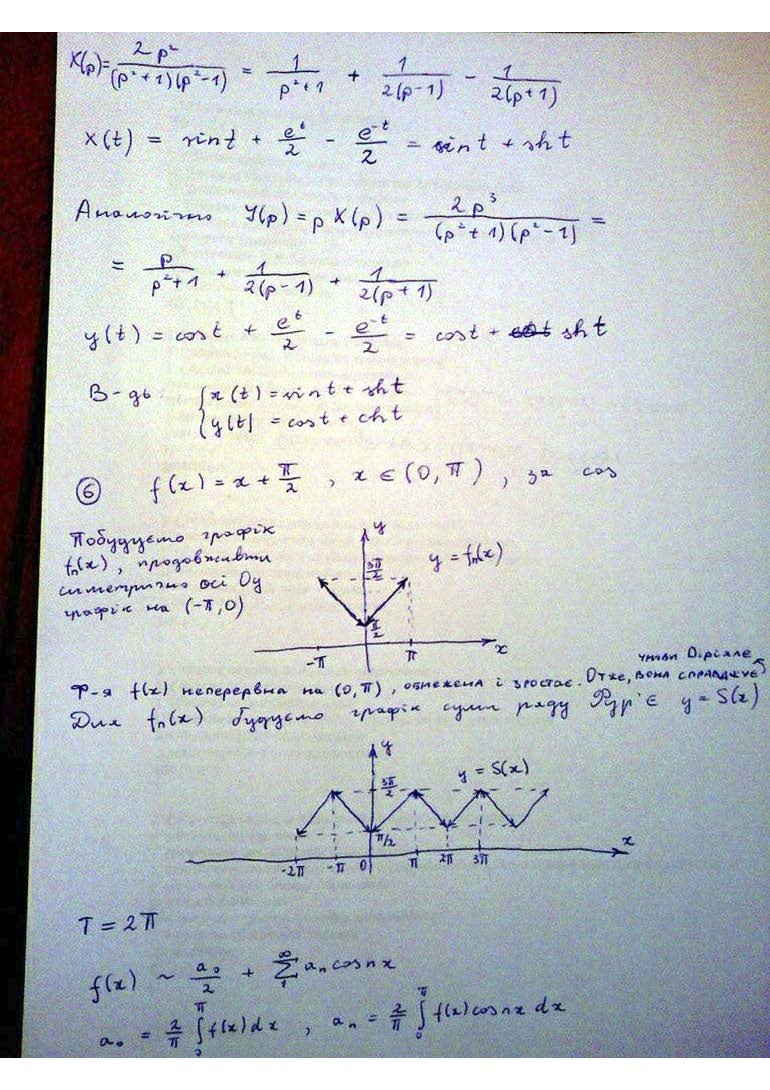 X(p) = 2p²/((p²+1)(p²-1)) = 1/(p²+1) + 1/(2(p-1)) - 1/(2(p+1))
x(t) = sin t + e^t/2 - e^-t/2 = sin t + sh t
Аналогічно Y(p) = p X(p) = 2p³/((p²+1)(p²-1)) =
= p/(p²+1) + 1/(2(p-1)) + 1/(2(p+1))
y(t) = cos t + e^t/2 - e^-t/2 = cos t + sh t
В-дь: { x(t) = sin t + sh t
y(t) = cos t + ch t
⑥ f(x) = x + π/2 , x ∈ (0, π) , за cos
Побудуємо графік
fп(x), продовживши
симетрично осі Oy
графік на (-π, 0)
y
3π/2
y = fп(x)
π/2
-π π x
умови Діріхле
Ф-я f(x) неперервна на (0, π), обмежена і зростає. Отже, вона справджує
Для fп(x) будуємо графік суми ряду Фур'є y = S(x)
y
3π/2
y = S(x)
π/2
-2π -π 0 π 2π 3π x
T = 2π
f(x) ~ a₀/2 + ∑₁^∞ aₙ cos nx
a₀ = 2/π ∫₀^π f(x) dx , aₙ = 2/π ∫₀^π f(x) cos nx dx